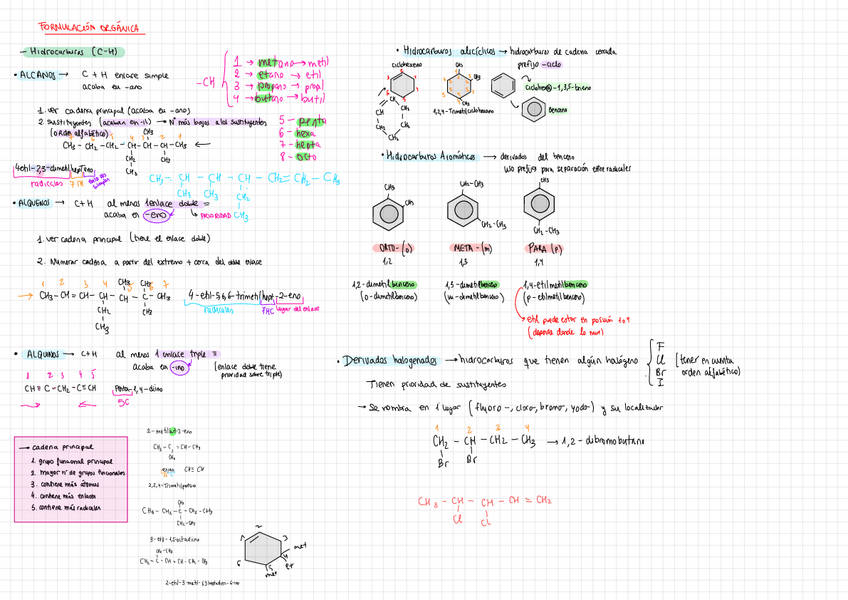 FORMULACIÓN ORGÁNICA
- Hidrocarburos (C-H)
• ALCANOS → C + H enlace simple
acaba en -ano
-CH
1 → metano → metil
2 → etano → etil
3 → propano → propil
4 → butano → butil
5 - penta
6 - hexa
7 - hepta
8 - octo
1. ver cadena principal (acaba en -ano)
2. Sustituyentes (acaban en -il) → Nº más bajos a los sustituyentes
(orden alfabético)
CH₃ - CH₂ - CH₂ - CH - CH - CH - CH₃ ←
CH₃
CH₂ CH₃
CH₃
4 etil-2,3-dimetil heptano
radicales 7C
CH₃ - CH - CH - CH - CH₂ - CH₂ - CH₃
CH₃ CH₃ CH₂
CH₃
• ALQUENOS → C+H al menos 1 enlace doble =
acaba en -eno → PRIORIDAD
1. ver cadena principal (tiene el enlace doble)
2. Numerar cadena a partir del extremo + cerca del doble enlace
1 2 3 4 5 6 7
CH₃ CH₃
→ CH₃ - CH = CH - CH - CH - C - CH₃
CH₂ CH₃
CH₃
4-etil-5,6,6-trimetil hept-2-eno
radicales 7HC lugar del enlace
• ALQUINOS → C+H al menos 1 enlace triple ≡
acaba en -ino (enlace doble tiene
prioridad sobre triple)
1 2 3 4 5
CH ≡ C - CH₂ - C ≡ CH Penta-1,4-diino
5C
→ cadena principal
1. grupo funcional principal
2. mayor nº de grupos funcionales
3. contiene más átomos
4. contiene más enlaces
5. contiene más radicales
2-metil but-2-eno
CH₃ - C = CH - CH₃
CH₃
etino CH ≡ CH
CH₃ - CH₂ - C - CH₂ - CH₃
CH₂ - CH₃
2-etil-3-metil-1,5-heptadien-6-ino
1 2 3 4 5 6
met
et
met
• Hidrocarburos alicíclicos → hidrocarburos de cadena cerrada
prefijo -ciclo
ciclohexeno
CH₃
CH₃
CH₃
1,2,4-Trimetilciclohexano
ciclohexa-1,3,5-trieno
Benceno
CH CH₃
CH₂ CH₂
CH₂
• Hidrocarburos Aromáticos → derivados del benceno
uso prefijo para separación entre radicales
CH₃
CH₃
CH₂-CH₃
CH₂-CH₃
CH₃
CH₂-CH₃
ORTO-(o) META-(m) PARA(p)
1,2 1,3 1,4
1,2-dimetilbenceno 1,3-dimetilbenceno 1,4-etilmetilbenceno
(o-dimetilbenceno) (m-dimetilbenceno) (p-etilmetilbenceno)
→ etil puede estar en posición 1 o 4
(depende donde lo num)
• Derivados halogenados → hidrocarburos que tienen algún halógeno
F
Cl
Br
I
(tener en cuenta
orden alfabético)
Tienen prioridad de sustituyentes
→ Se nombra en 1º lugar (fluoro-, cloro-, bromo-, yodo-) y su localizador
1 2 3 4
CH₂ - CH - CH₂ - CH₃ → 1,2-dibromobutano
Br Br
CH₃ - CH - CH - CH = CH₂
Cl Cl